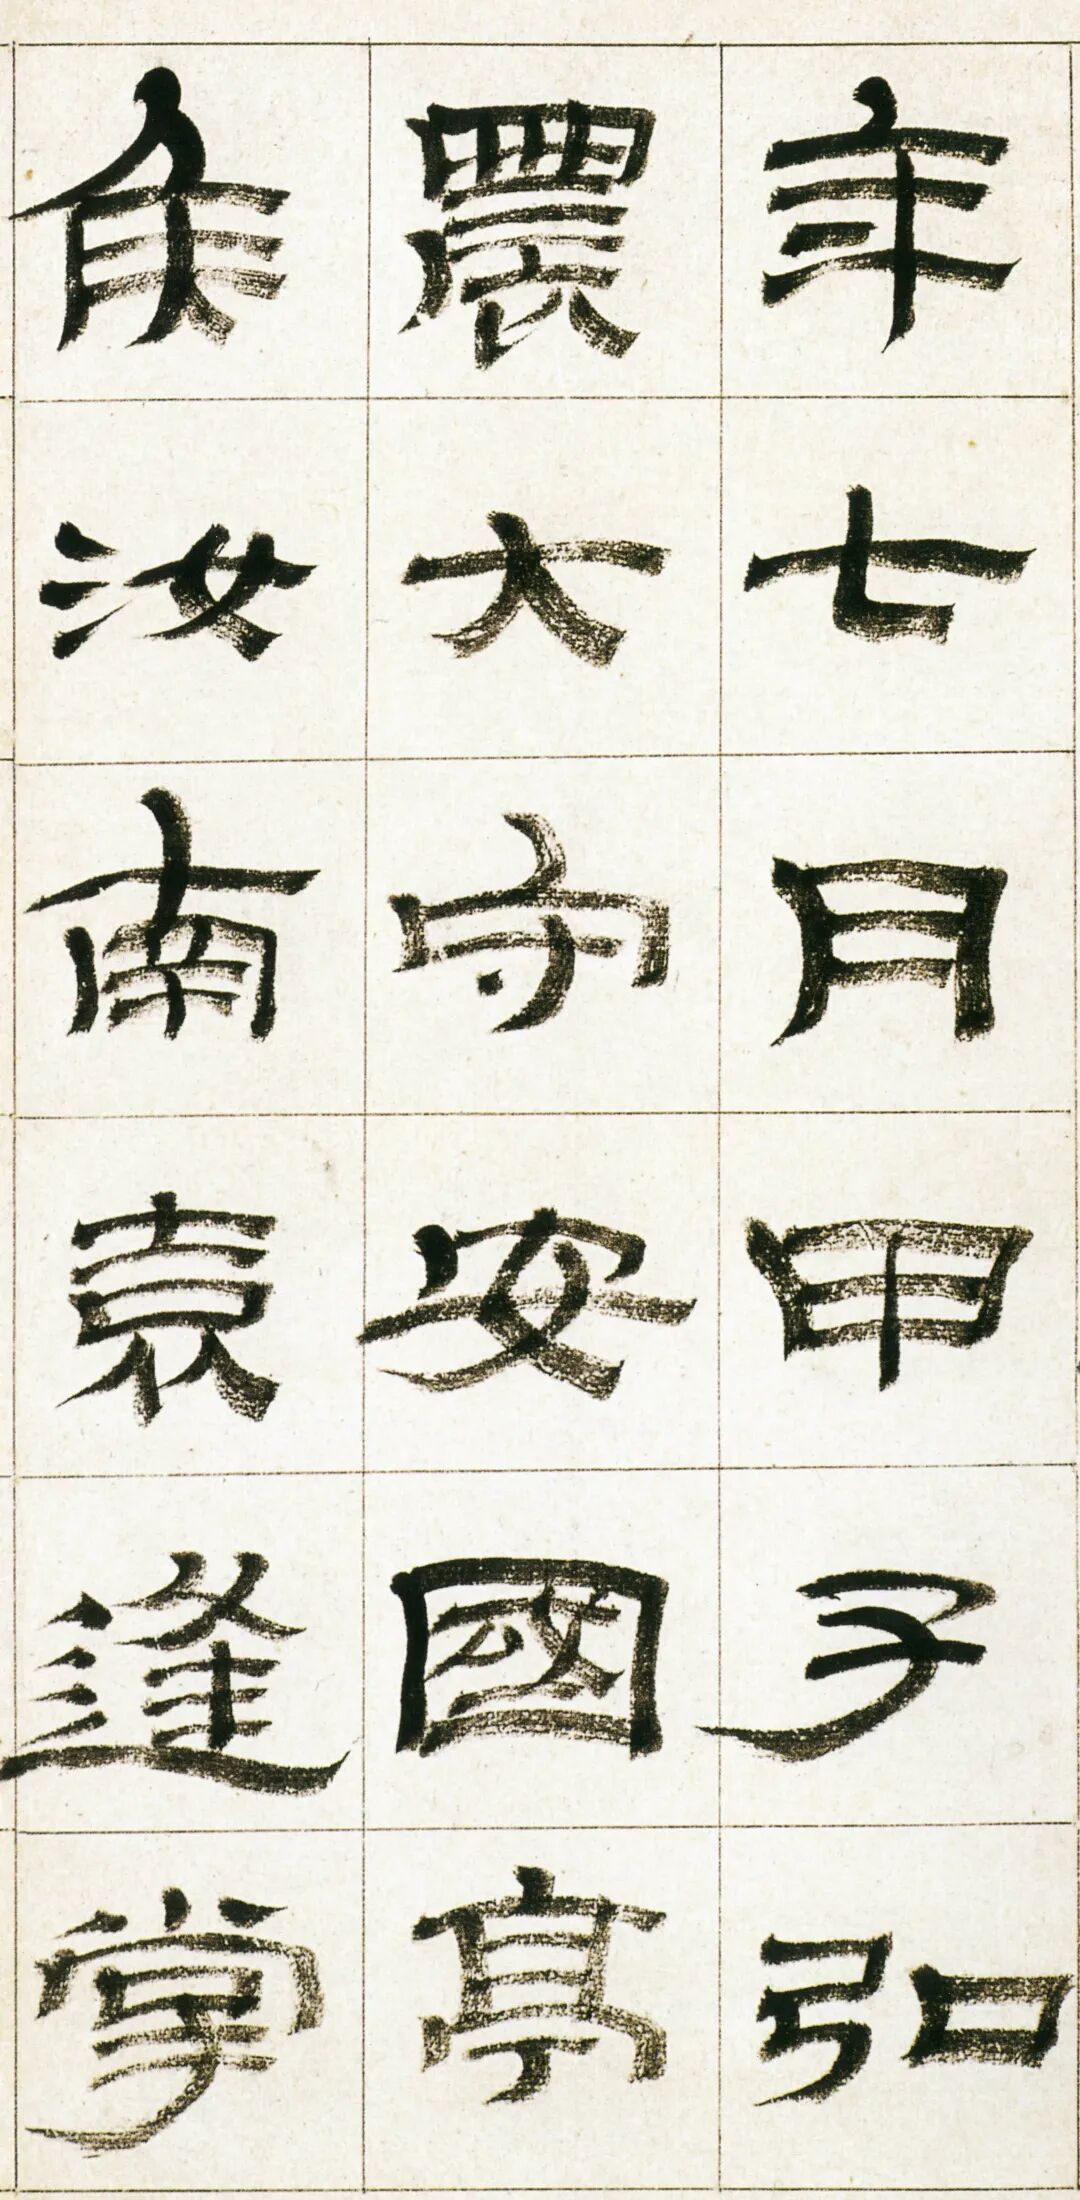 年七月甲子弘
農大守安國亭
矦汝南袁逢掌